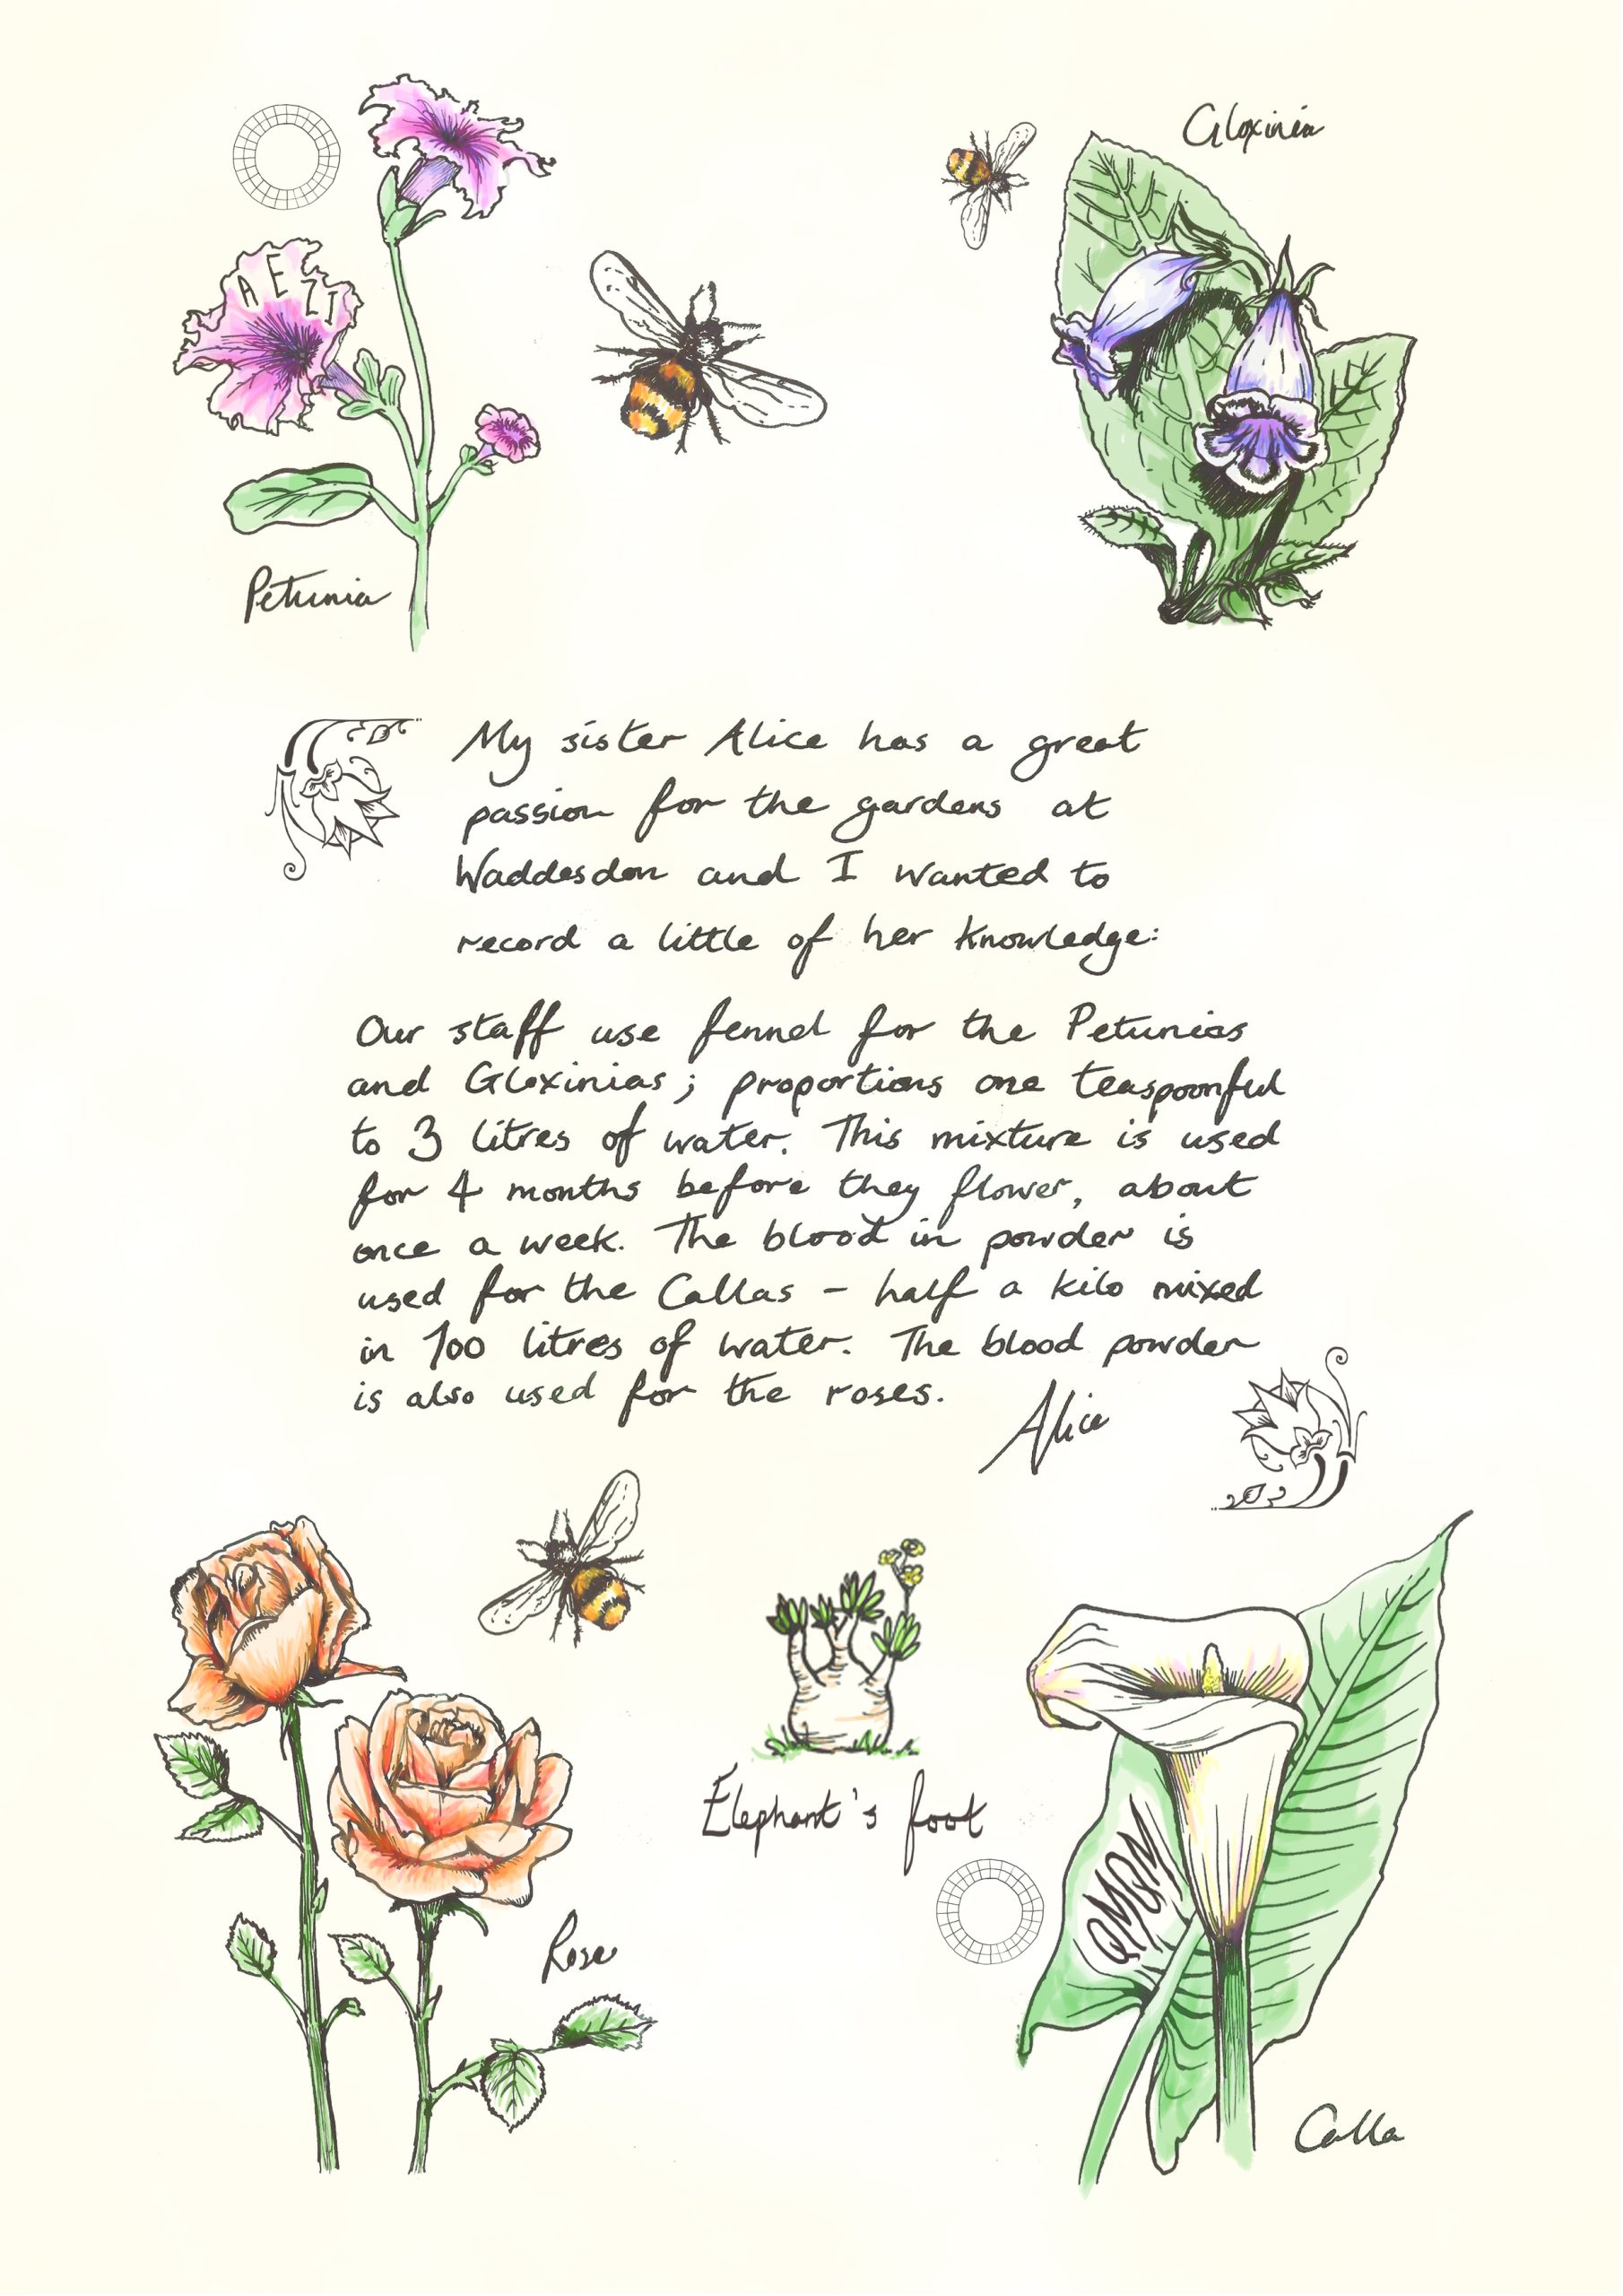 Gloxinia
A E Z I
Petunia
My sister Alice has a great
passion for the gardens at
Waddesdon and I wanted to
record a little of her knowledge:
Our staff use fennel for the Petunias
and Gloxinias; proportions one teaspoonful
to 3 litres of water. This mixture is used
for 4 months before they flower, about
once a week. The blood in powder is
used for the Callas - half a kilo mixed
in 100 litres of water. The blood powder
is also used for the roses.
Alice
Elephant's foot
QMQM
Rose
Calla